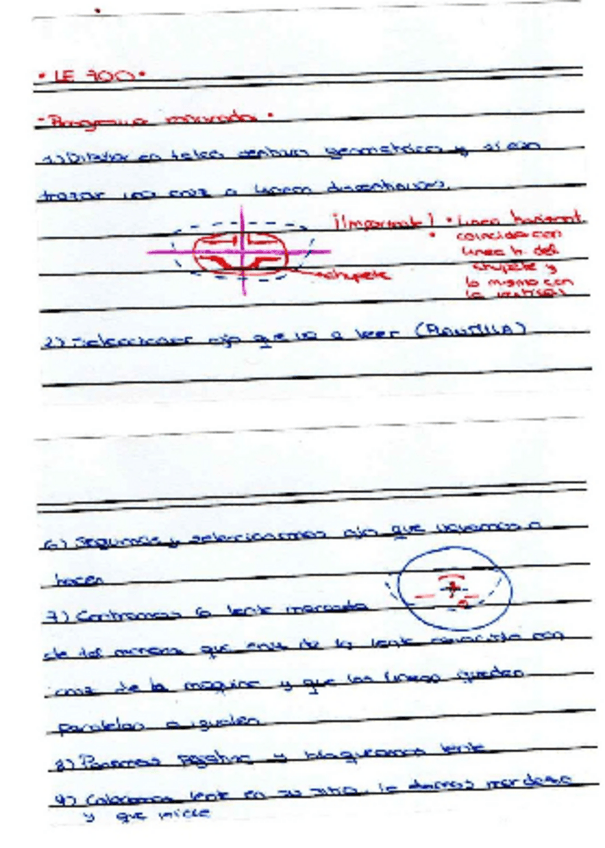 • LE 700 •
- Programa marcada •
1) Dibujar en talco centros geométricos y si son
trazar una cruz a
¡Importante! • Linea horizont
coincida con
linea h. del
chupete y
lo mismo con
la vertical
chupete
2) Seleccionar ojo que va a leer (PLANTILLA)
6) Seguimos y seleccionamos ojo que vayamos a
hacer
7) Centramos la lente marcada
de tal manera que cruz de la lente coincida con
cruz de la maquina y que las lineas queden
paralelas o igualen
8) Ponemos pegatina y bloqueamos lente
9) Colocamos lente en su sitio, le damos mordaza
y que inicie